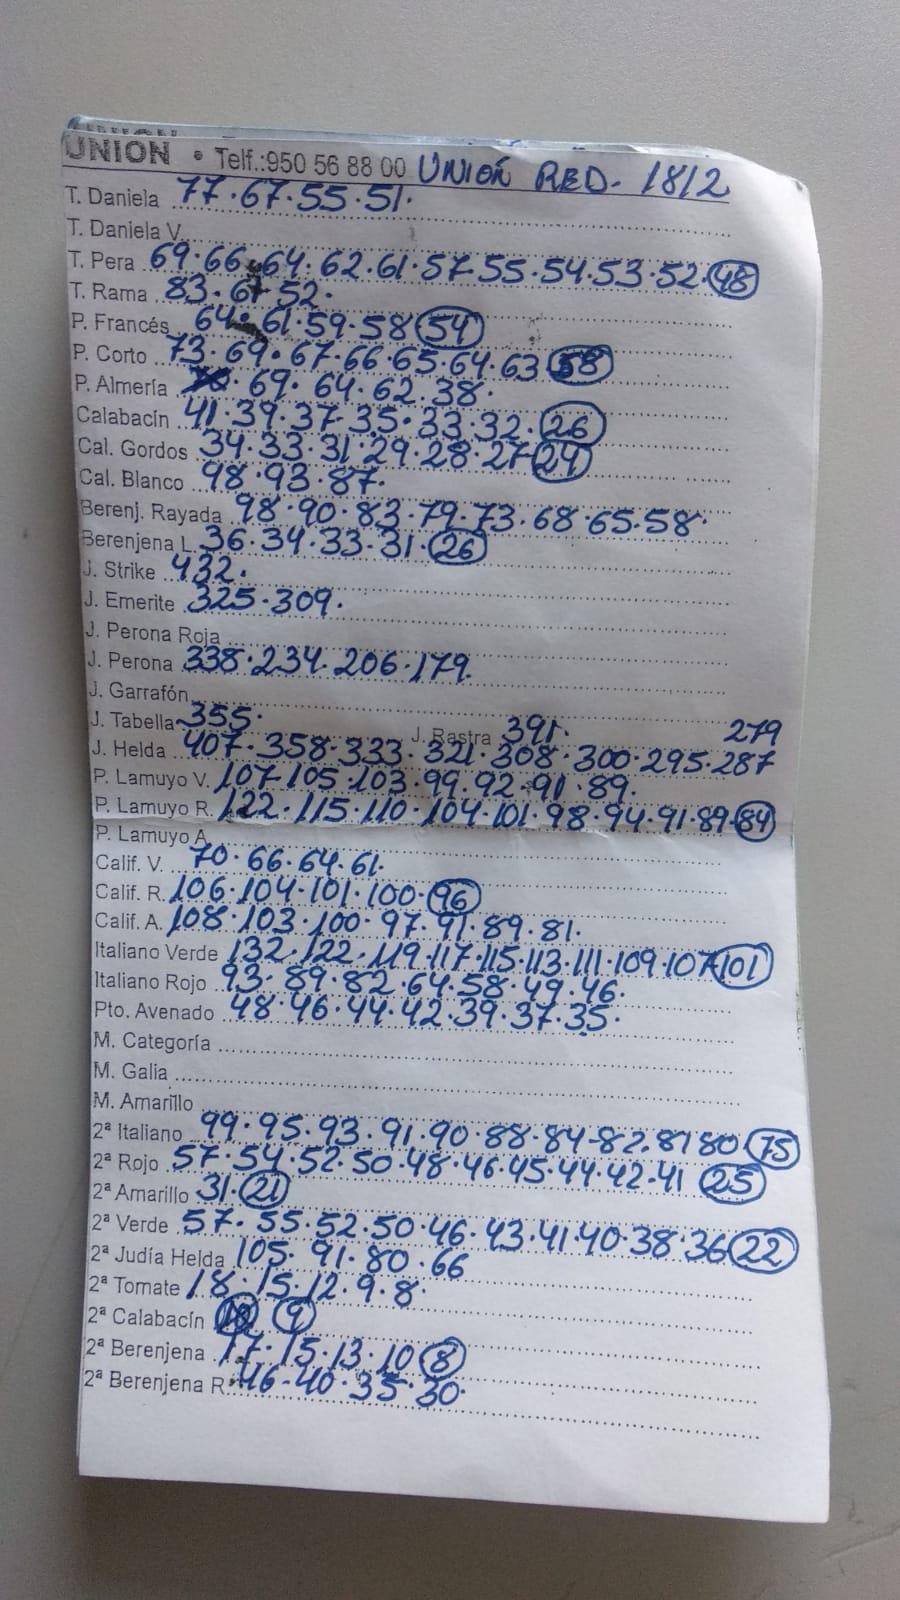 UNION • Telf.:950 56 88 00 UNION RED. 18/2
T. Daniela 77.67.55.51.
T. Daniela V.
T. Pera 69.66.64.62.61.57.55.54.53.52.48
T. Rama 83.67.52.
P. Francés 64.61.59.58 54
P. Corto 73.69.67.66.65.64.63 58
P. Almería 69.64.62.38.
Calabacín 41.39.37.35.33.32.26
Cal. Gordos 34.33.31.29.28.27 24
Cal. Blanco 98.93.87.
Berenj. Rayada 98.90.83.79.73.68.65.58.
Berenjena L. 36.34.33.31.26
J. Strike 432.
J. Emerite 325.309.
J. Perona Roja
J. Perona 338.234.206.179.
J. Garrafón
J. Tabella 355. J. Rastra 391. 279
J. Helda 407.358.333.321.308.300.295.287
P. Lamuyo V. 107.105.103.99.92.91.89.
P. Lamuyo R. 122.115.110.104.101.98.94.91.89.84
P. Lamuyo A.
Calif. V. 70.66.64.61.
Calif. R. 106.104.101.100.96
Calif. A. 108.103.100.97.91.89.81.
Italiano Verde 132.122.119.117.115.113.111.109.107.101
Italiano Rojo 93.89.82.64.58.49.46.
Pto. Avenado 48.46.44.42.39.37.35.
M. Categoría
M. Galia
M. Amarillo
2ª Italiano 99.95.93.91.90.88.84-82.81 80 75
2ª Rojo 57.54.52.50.48.46.45.44.42.41 25
2ª Amarillo 31.21
2ª Verde 57.55.52.50.46.43.41.40.38.36 22
2ª Judía Helda 105.91.80.66
2ª Tomate 18.15.12.9.8.
2ª Calabacín 9
2ª Berenjena 17.15.13.10 8
2ª Berenjena R. 46-40.35.30.